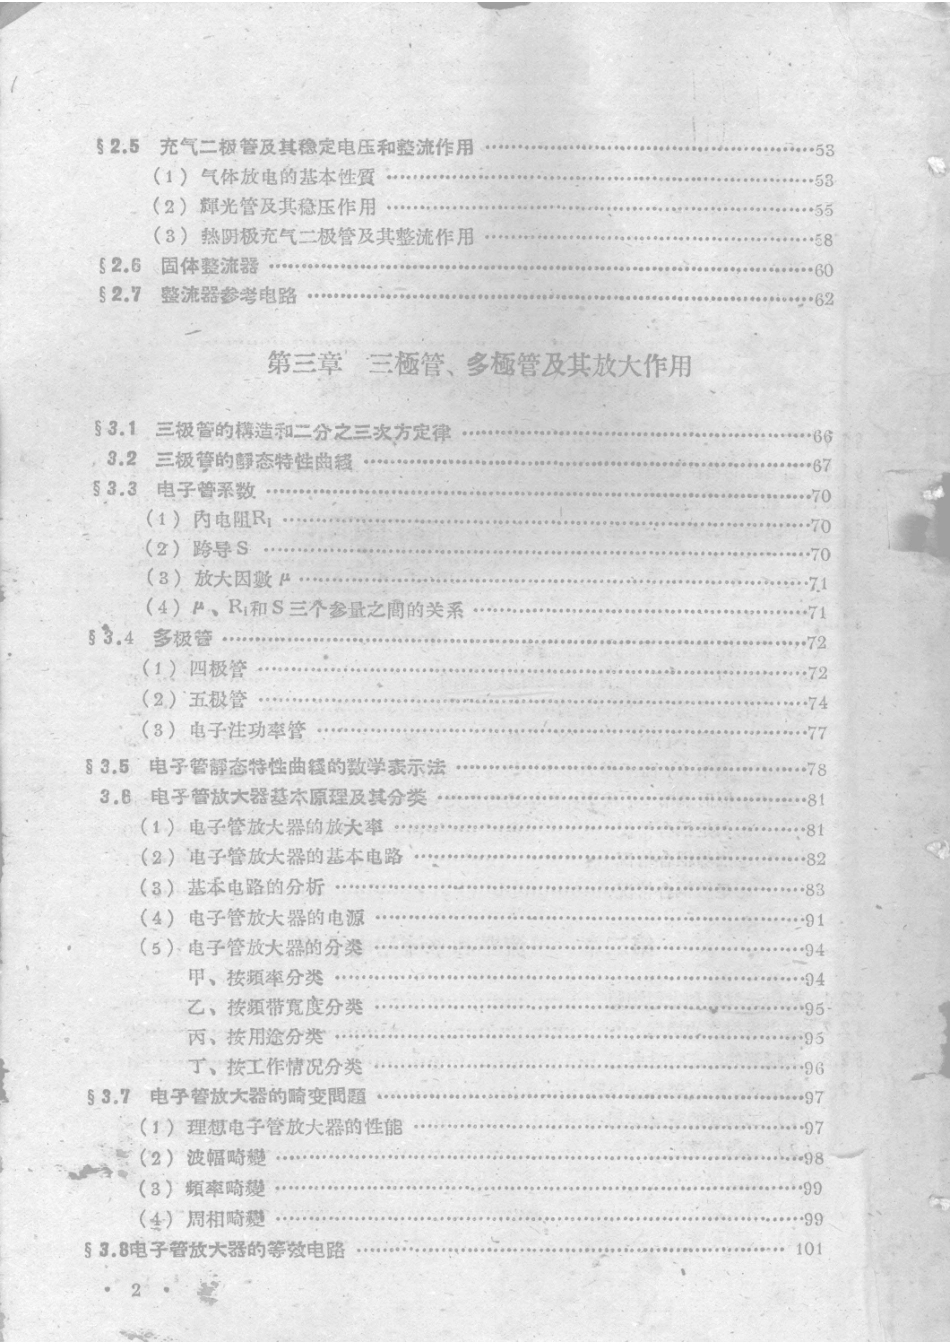 §2.5 充气二极管及其稳定电压和整流作用 ……53
(1) 气体放电的基本性質 ……53
(2) 輝光管及其稳压作用 ……55
(3) 热阴极充气二极管及其整流作用 ……58
§2.6 固体整流器 ……60
§2.7 整流器参考电路 ……62
第三章 三極管、多極管及其放大作用
§3.1 三极管的構造和二分之三次方定律 ……66
3.2 三极管的靜态特性曲綫 ……67
§3.3 电子管系数 ……70
(1) 内电阻R₁ ……70
(2) 跨导S ……70
(3) 放大因數μ ……71
(4) μ、R₁和S三个参量之間的关系 ……71
§3.4 多极管 ……72
(1) 四极管 ……72
(2) 五极管 ……74
(3) 电子注功率管 ……77
§3.5 电子管靜态特性曲綫的数学表示法 ……78
3.6 电子管放大器基本原理及其分类 ……81
(1) 电子管放大器的放大率 ……81
(2) 电子管放大器的基本电路 ……82
(3) 基本电路的分析 ……83
(4) 电子管放大器的电源 ……91
(5) 电子管放大器的分类 ……94
甲、按頻率分类 ……94
乙、按頻带寬度分类 ……95
丙、按用途分类 ……95
丁、按工作情况分类 ……96
§3.7 电子管放大器的畸变問題 ……97
(1) 理想电子管放大器的性能 ……97
(2) 波幅畸變 ……98
(3) 頻率畸變 ……99
(4) 周相畸變 ……99
§3.8电子管放大器的等效电路 ……101
· 2 ·